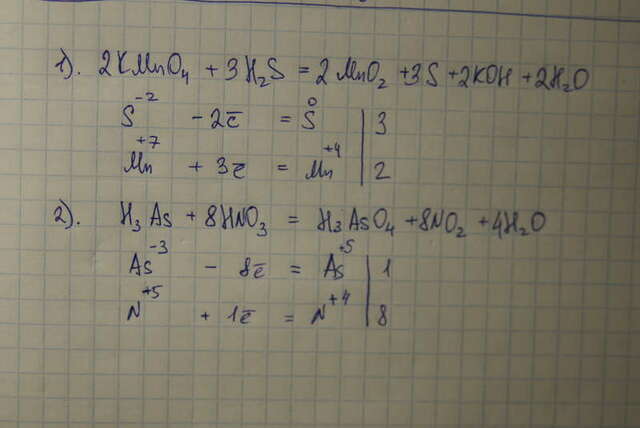 1). 2KMnO₄ + 3H₂S = 2MnO₂ + 3S + 2KOH + 2H₂O
S⁻² - 2ē = S⁰ | 3
Mn⁺⁷ + 3ē = Mn⁺⁴ | 2
2). H₃As + 8HNO₃ = H₃AsO₄ + 8NO₂ + 4H₂O
As⁻³ - 8ē = As⁺⁵ | 1
N⁺⁵ + 1ē = N⁺⁴ | 8